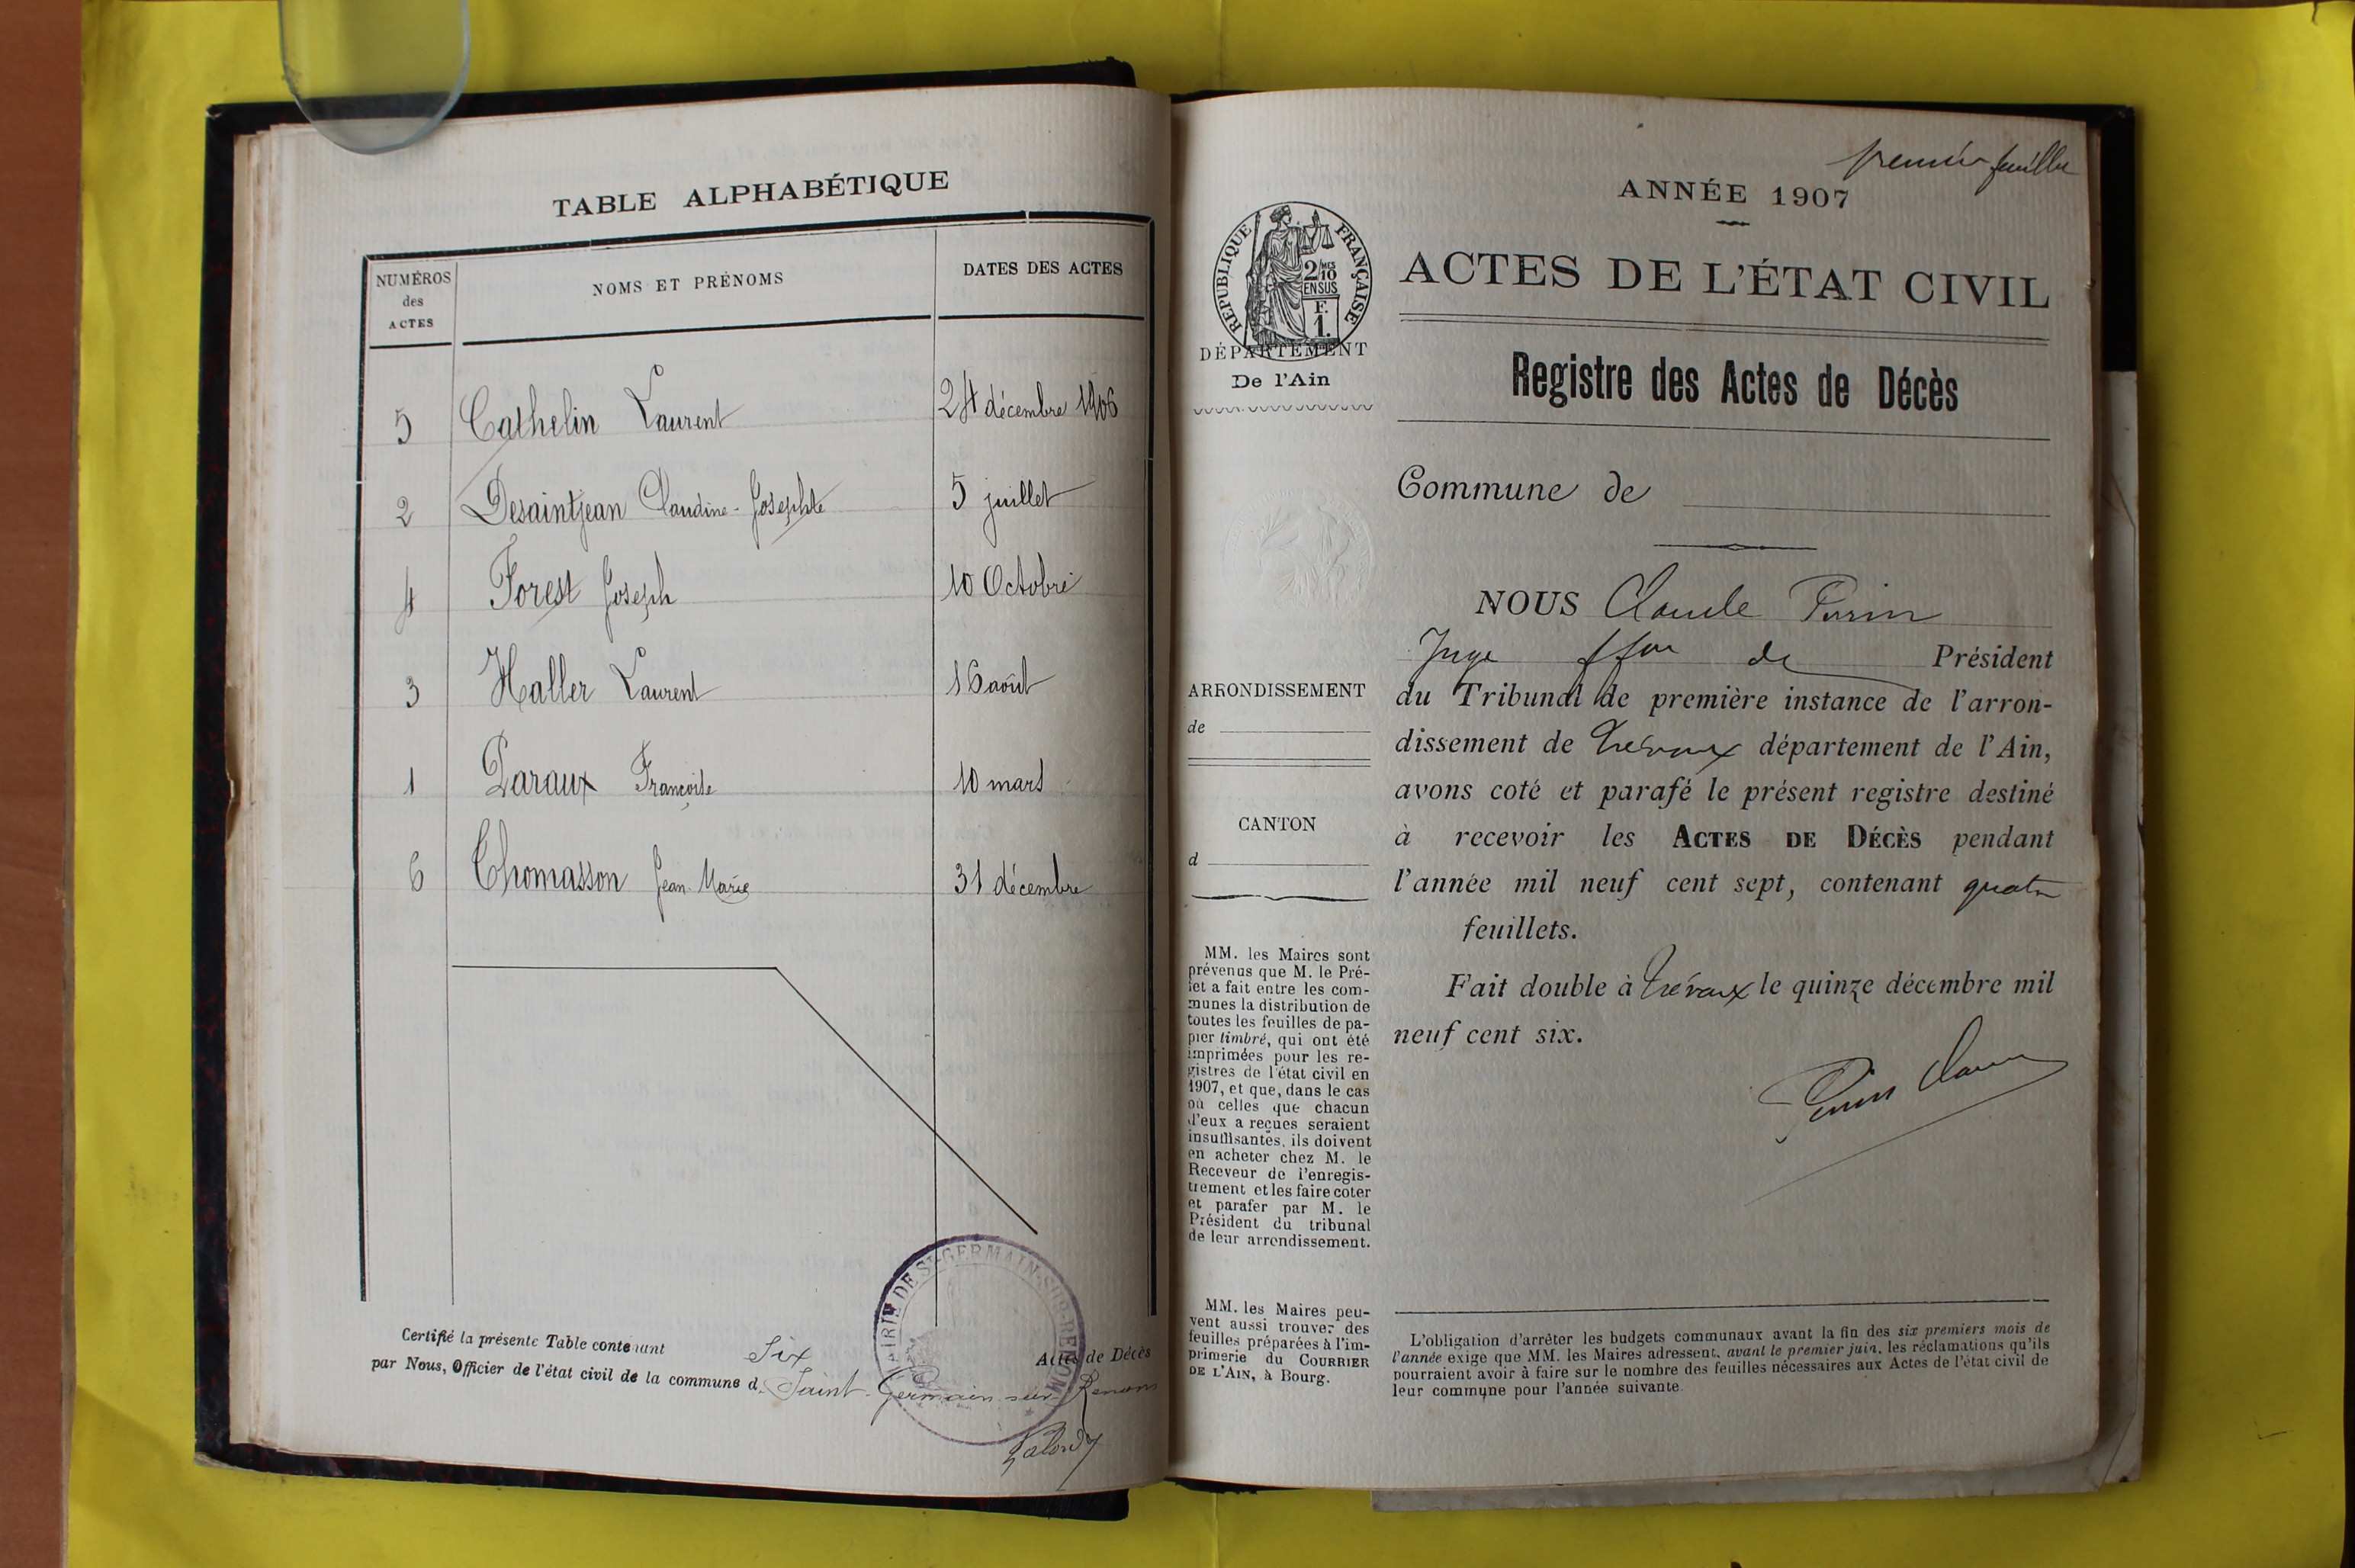 TABLE ALPHABÉTIQUE
NUMÉROS des ACTES
NOMS ET PRÉNOMS
DATES DES ACTES
5 Cathelin Laurent 24 décembre 1906
2 Desaintjean Claudine-Josephte 5 juillet
4 Forest Joseph 10 Octobre
3 Haller Laurent 16 août
1 Paraux Françoise 10 mars
6 Thomasson Jean-Marie 31 décembre
Certifié la présente Table contenant Six Actes de Décès
par Nous, Officier de l'état civil de la commune d. Saint-Germain-sur-Renom
MAIRIE DE ST-GERMAIN-SUR-RENOM
première feuille
ANNÉE 1907
RÉPUBLIQUE FRANÇAISE
2/10 MES
EN SUS
F.
1.
DÉPARTEMENT
De l'Ain
ACTES DE L'ÉTAT CIVIL
Registre des Actes de Décès
Commune de
NOUS Claude Perrin
Juge ffon de Président
du Tribunal de première instance de l'arron-
dissement de Trévoux département de l'Ain,
avons coté et parafé le présent registre destiné
à recevoir les ACTES DE DÉCÈS pendant
l'année mil neuf cent sept, contenant quatre
feuillets.
Fait double à Trévoux le quinze décembre mil
neuf cent six.
Perrin Claude
ARRONDISSEMENT
de
CANTON
d
MM. les Maires sont
prévenus que M. le Pré-
fet a fait entre les com-
munes la distribution de
toutes les feuilles de pa-
pier timbré, qui ont été
imprimées pour les re-
gistres de l'état civil en
1907, et que, dans le cas
où celles que chacun
d'eux a reçues seraient
insuffisantes, ils doivent
en acheter chez M. le
Receveur de l'enregis-
trement et les faire coter
et parafer par M. le
Président du tribunal
de leur arrondissement.
MM. les Maires peu-
vent aussi trouver des
feuilles préparées à l'im-
primerie du COURRIER
DE L'AIN, à Bourg.
L'obligation d'arrêter les budgets communaux avant la fin des six premiers mois de
l'année exige que MM. les Maires adressent, avant le premier juin, les réclamations qu'ils
pourraient avoir à faire sur le nombre des feuilles nécessaires aux Actes de l'état civil de
leur commune pour l'année suivante.